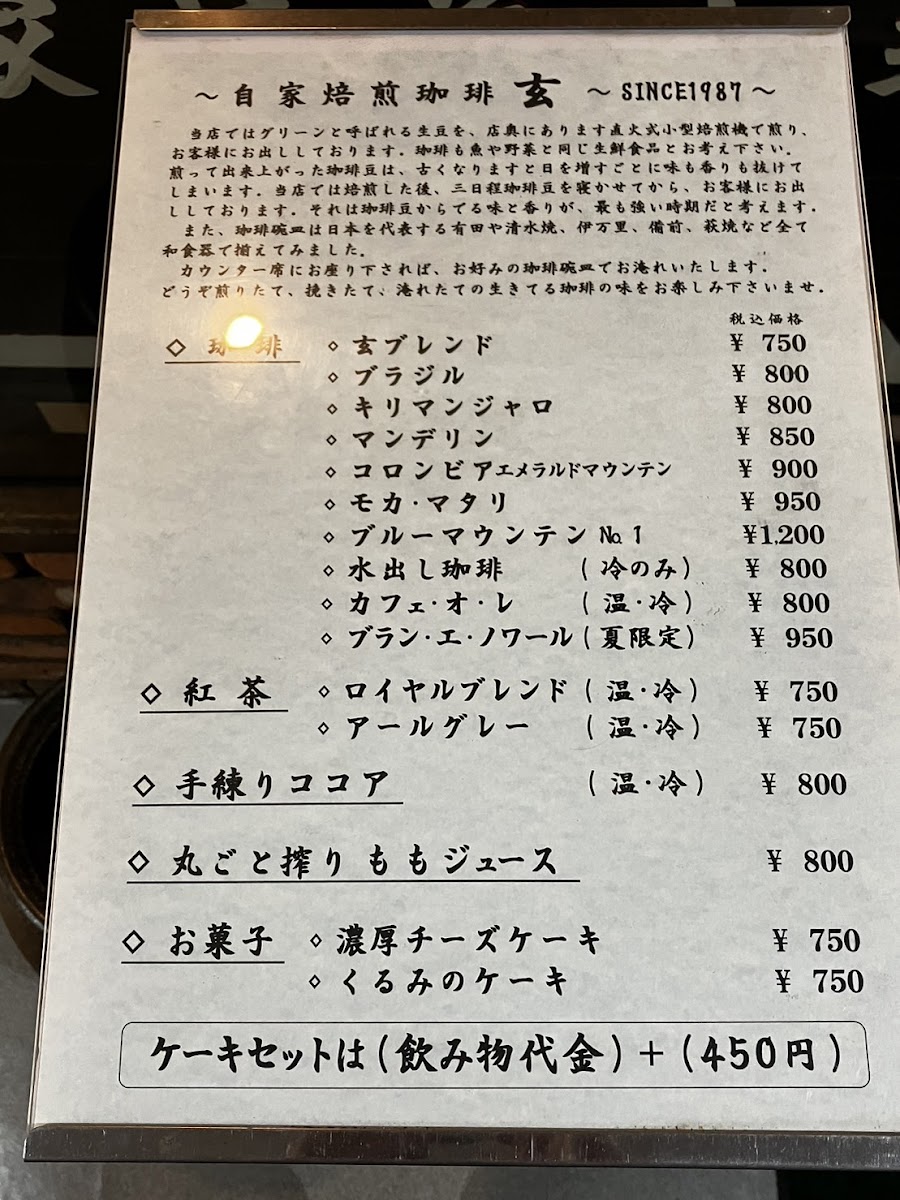 ～自家焙煎珈琲 玄 ～SINCE1987～
当店ではグリーンと呼ばれる生豆を、店奥にあります直火式小型焙煎機で煎り、
お客様にお出ししております．珈琲も魚や野菜と同じ生鮮食品とお考え下さい．
煎って出来上がった珈琲豆は、古くなりますと日を増すごとに味も香りも抜けて
しまいます．当店では焙煎した後、三日程珈琲豆を寝かせてから、お客様にお出
ししております．それは珈琲豆からでる味と香りが、最も強い時期だと考えます．
また、珈琲碗皿は日本を代表する有田や清水焼、伊万里、備前、萩焼など全て
和食器で揃えてみました．
カウンター席にお座り下されば、お好みの珈琲碗皿でお淹れいたします．
どうぞ煎りたて、挽きたて、淹れたての生きてる珈琲の味をお楽しみ下さいませ．
税込価格
◇ 珈琲 ◇ 玄ブレンド ¥ 750
◇ ブラジル ¥ 800
◇ キリマンジャロ ¥ 800
◇ マンデリン ¥ 850
◇ コロンビアエメラルドマウンテン ¥ 900
◇ モカ・マタリ ¥ 950
◇ ブルーマウンテン №1 ¥1,200
◇ 水出し珈琲 (冷のみ) ¥ 800
◇ カフェ・オ・レ (温・冷) ¥ 800
◇ ブラン・エ・ノワール (夏限定) ¥ 950
◇ 紅茶 ◇ ロイヤルブレンド (温・冷) ¥ 750
◇ アールグレー (温・冷) ¥ 750
◇ 手練りココア (温・冷) ¥ 800
◇ 丸ごと搾り ももジュース ¥ 800
◇ お菓子 ◇ 濃厚チーズケーキ ¥ 750
◇ くるみのケーキ ¥ 750
ケーキセットは(飲み物代金)+(450円)